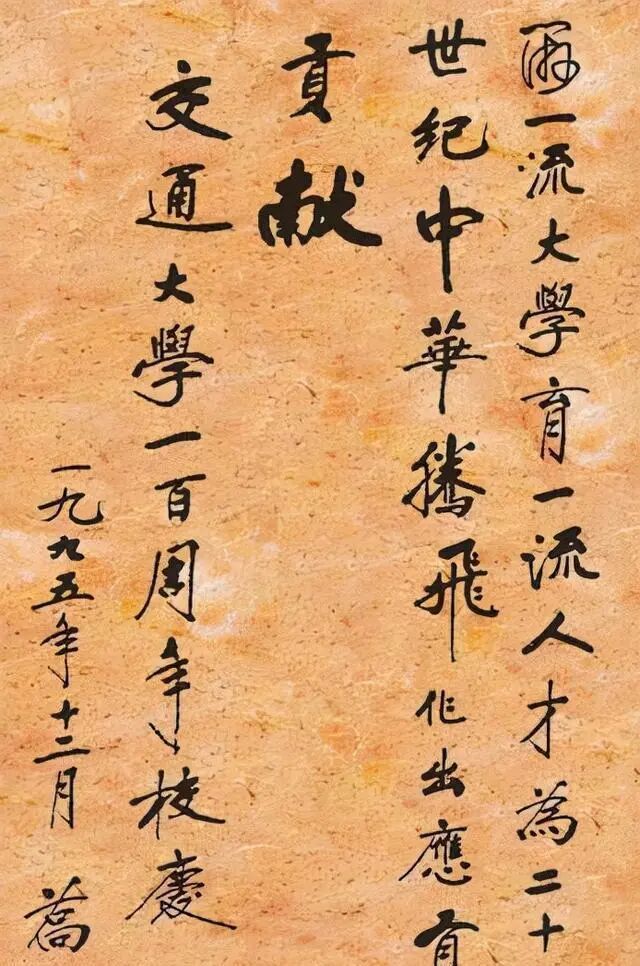 辦一流大學育一流人才為二十
世紀中華騰飛作出應有
貢献
交通大學一百周年校慶
一九九五年十二月 喬